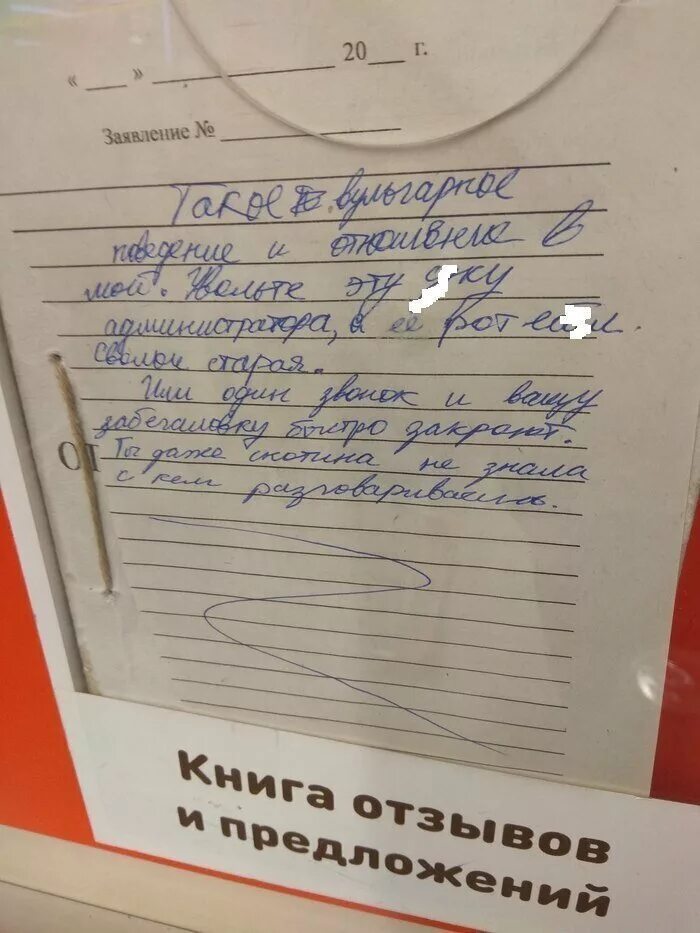 « » 20 г.
Заявление №
Такое вульгарное
поведение и отношение в
мой. Увольте эту
администратора, а её рот
Сволои старая.
Или один звонок и вашу
забегаловку быстро закроют.
ОТ
Ты даже скотина не знала
с кем разговариваешь.
Книга отзывов
и предложений